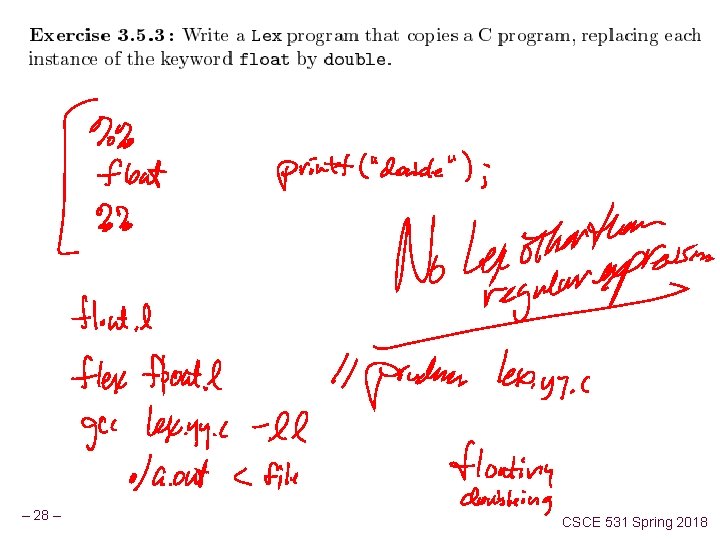 Exercise 3.5.3: Write a Lex program that copies a C program, replacing each
instance of the keyword float by double.
%%
float printf("double");
%%
No Lex other than
regular expression
float.l
flex float.l // produces lex.yy.c
gcc lex.yy.c -ll
./a.out < file
floating
doubleing
– 28 –
CSCE 531 Spring 2018